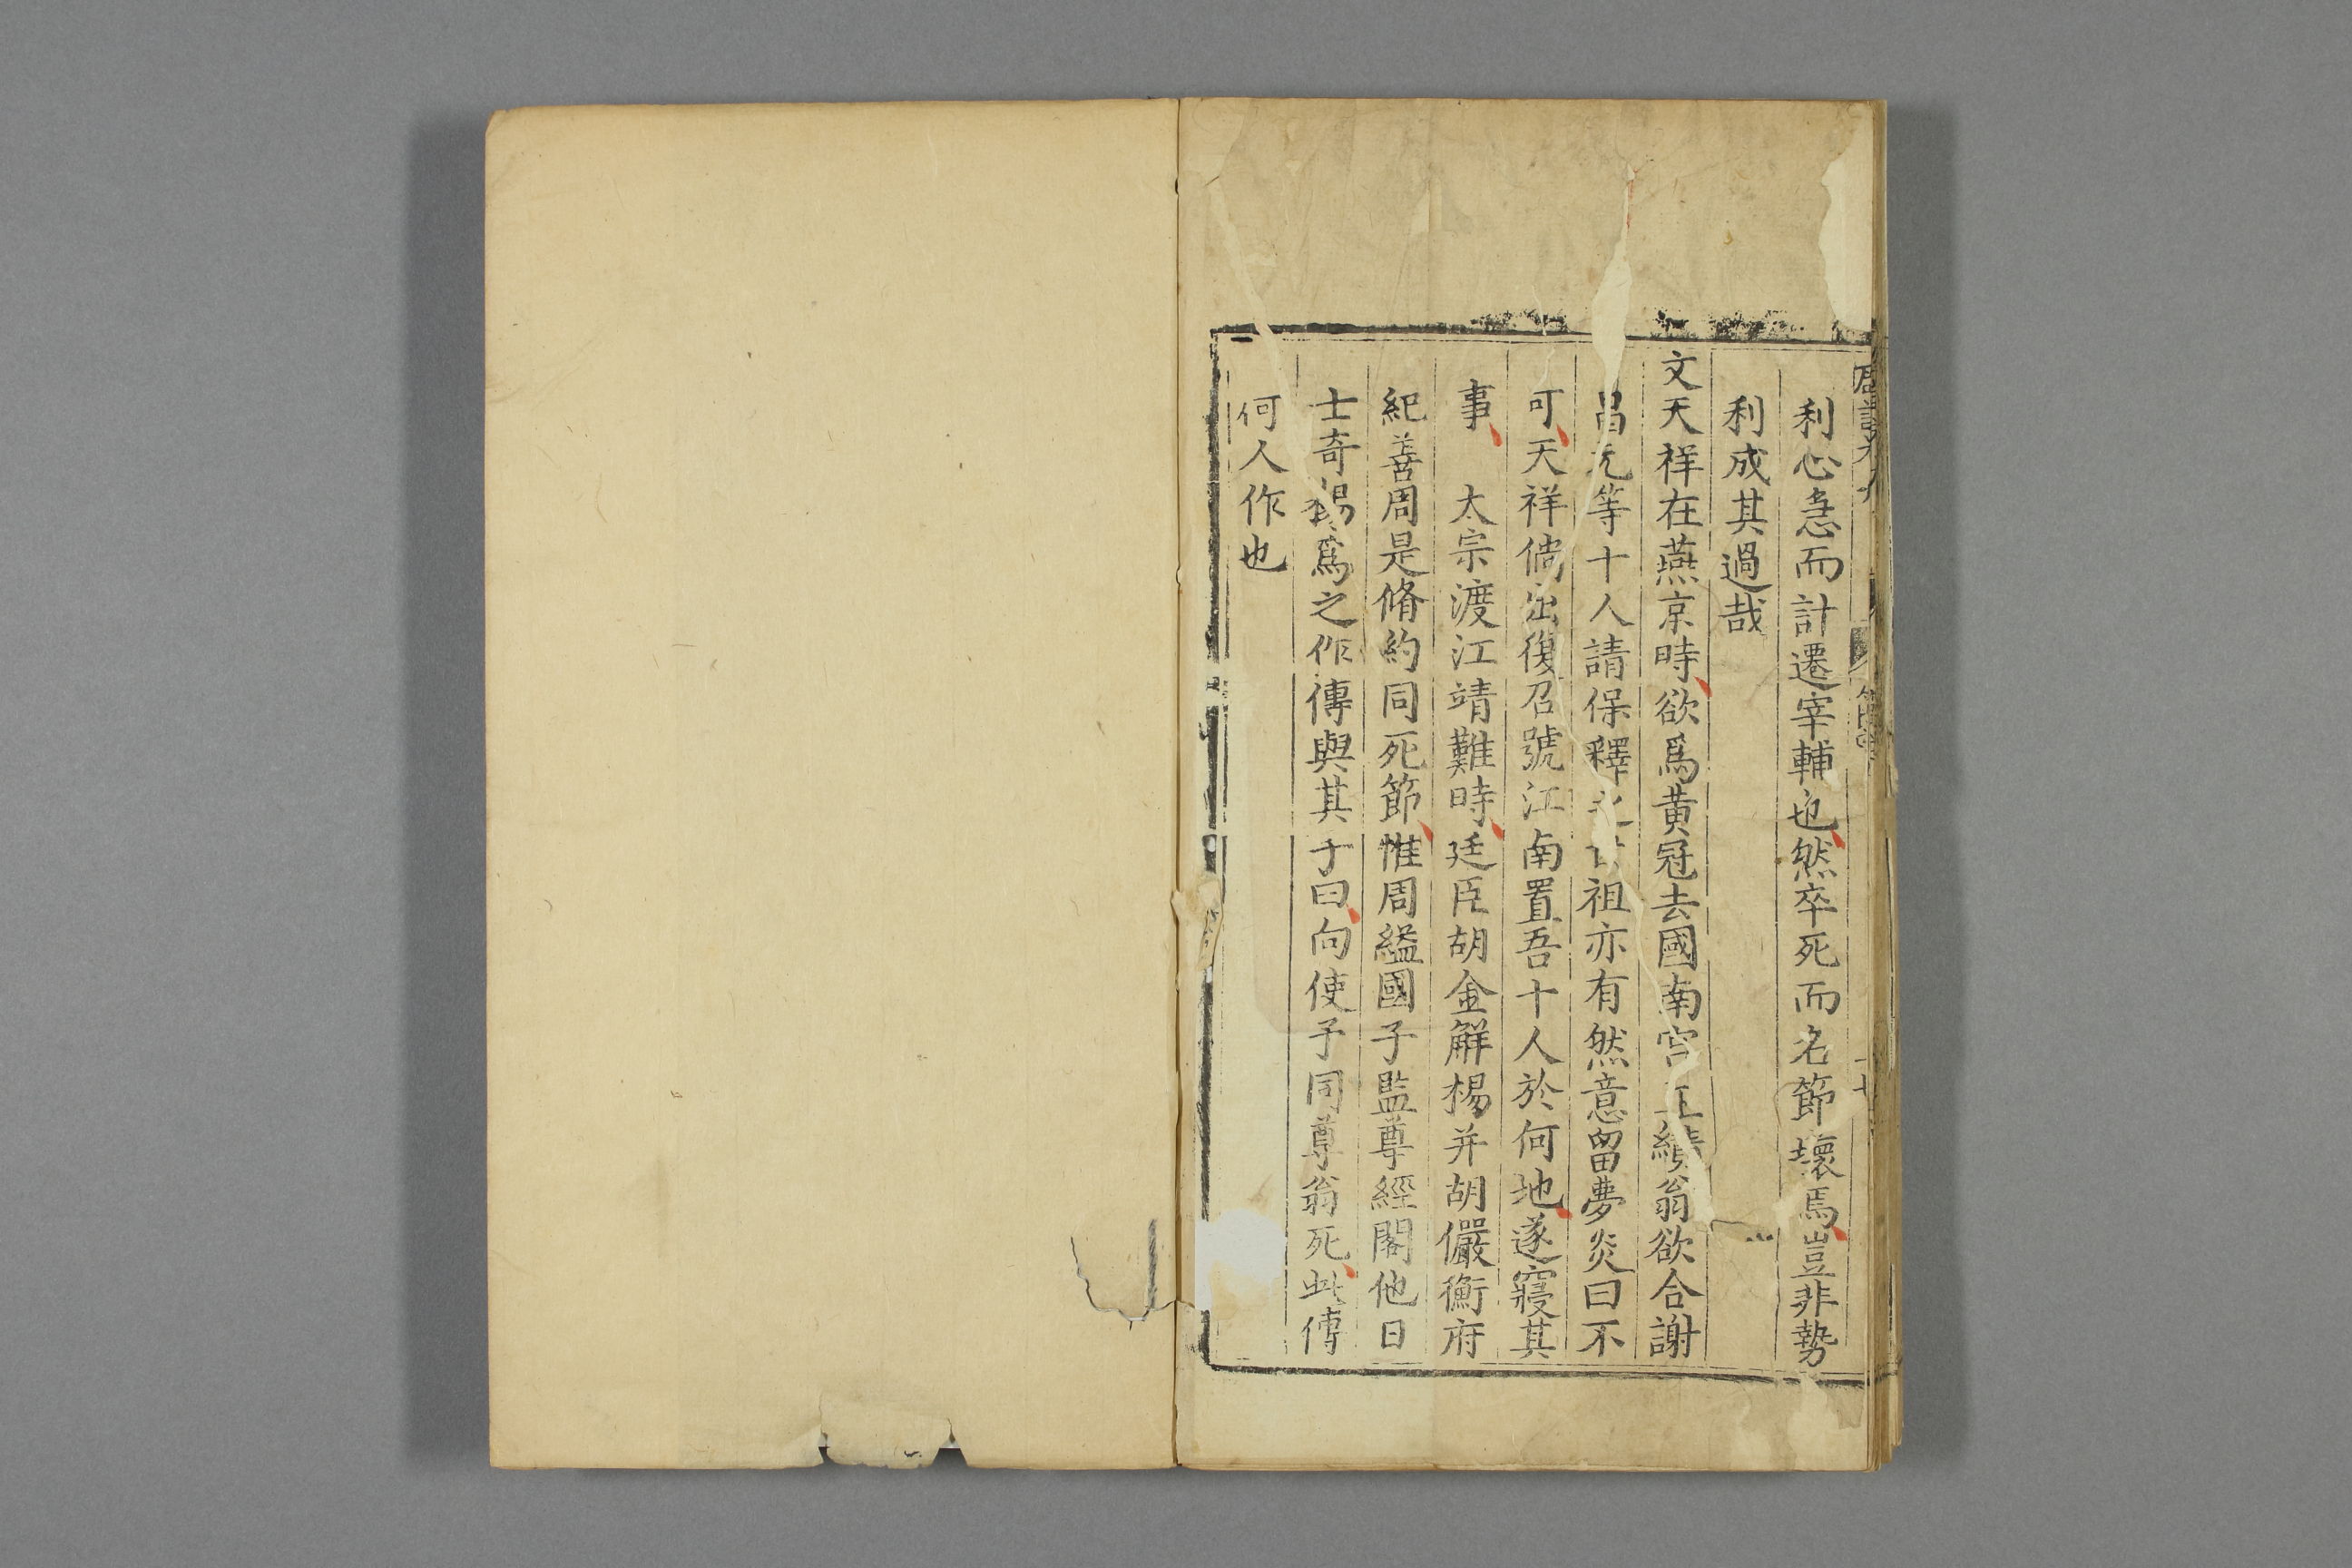 利心急而計遷宰輔也然卒死而名節壞焉豈非勢
利成其過哉
文天祥在燕京時欲爲黄冠去國南宫王績翁欲合謝
昌元等十人請保釋之祖亦有然意留夢炎曰不
可天祥倘出復召號江南置吾十人於何地遂寢其
事 太宗渡江靖難時廷臣胡金解楊并胡儼衡府
紀善周是脩約同死節惟周縊國子監尊經閣他日
士奇楊爲之作傳與其子曰向使予同尊翁死此傳
何人作也